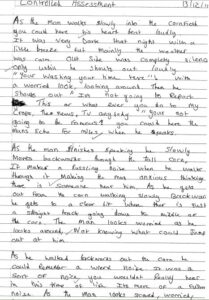 Controlled Assessment 3/12/11
As the man walks slowly into the Cornfield
you could here his heart beat loudly.
It was very Dark that night with a
little breeze but mainly the weather
was our Out Side was completly silence
only when he Shouts out loudly
"Your wasting your time here" with
a worried look around then he
Shouts " I am going to Report
This or what ever you do to my
Crops the news, TV anybody " your not
going to be famous" you could here the
Mans Echo for miles when he speaks.
As the man finishes Speaking he Slowly
Moves backwards through the tall corn,
It makes a Russling noise when he walks
through it Making the man anxious thinking
there is Someone near him. As he gets
out from the corn walking slowly Backwards
he gets to a clear bit where there is just
a straight track going down to middle of
the corn. The man looks worried as he
looks around, Not knowing what could Jump
out at him
As he walked backwards out the corn he
could Remember a weird noise It was a
sort of noise you wouldn't Really hear
in this time of its more on a future
noise As the Man looks scared, worried,